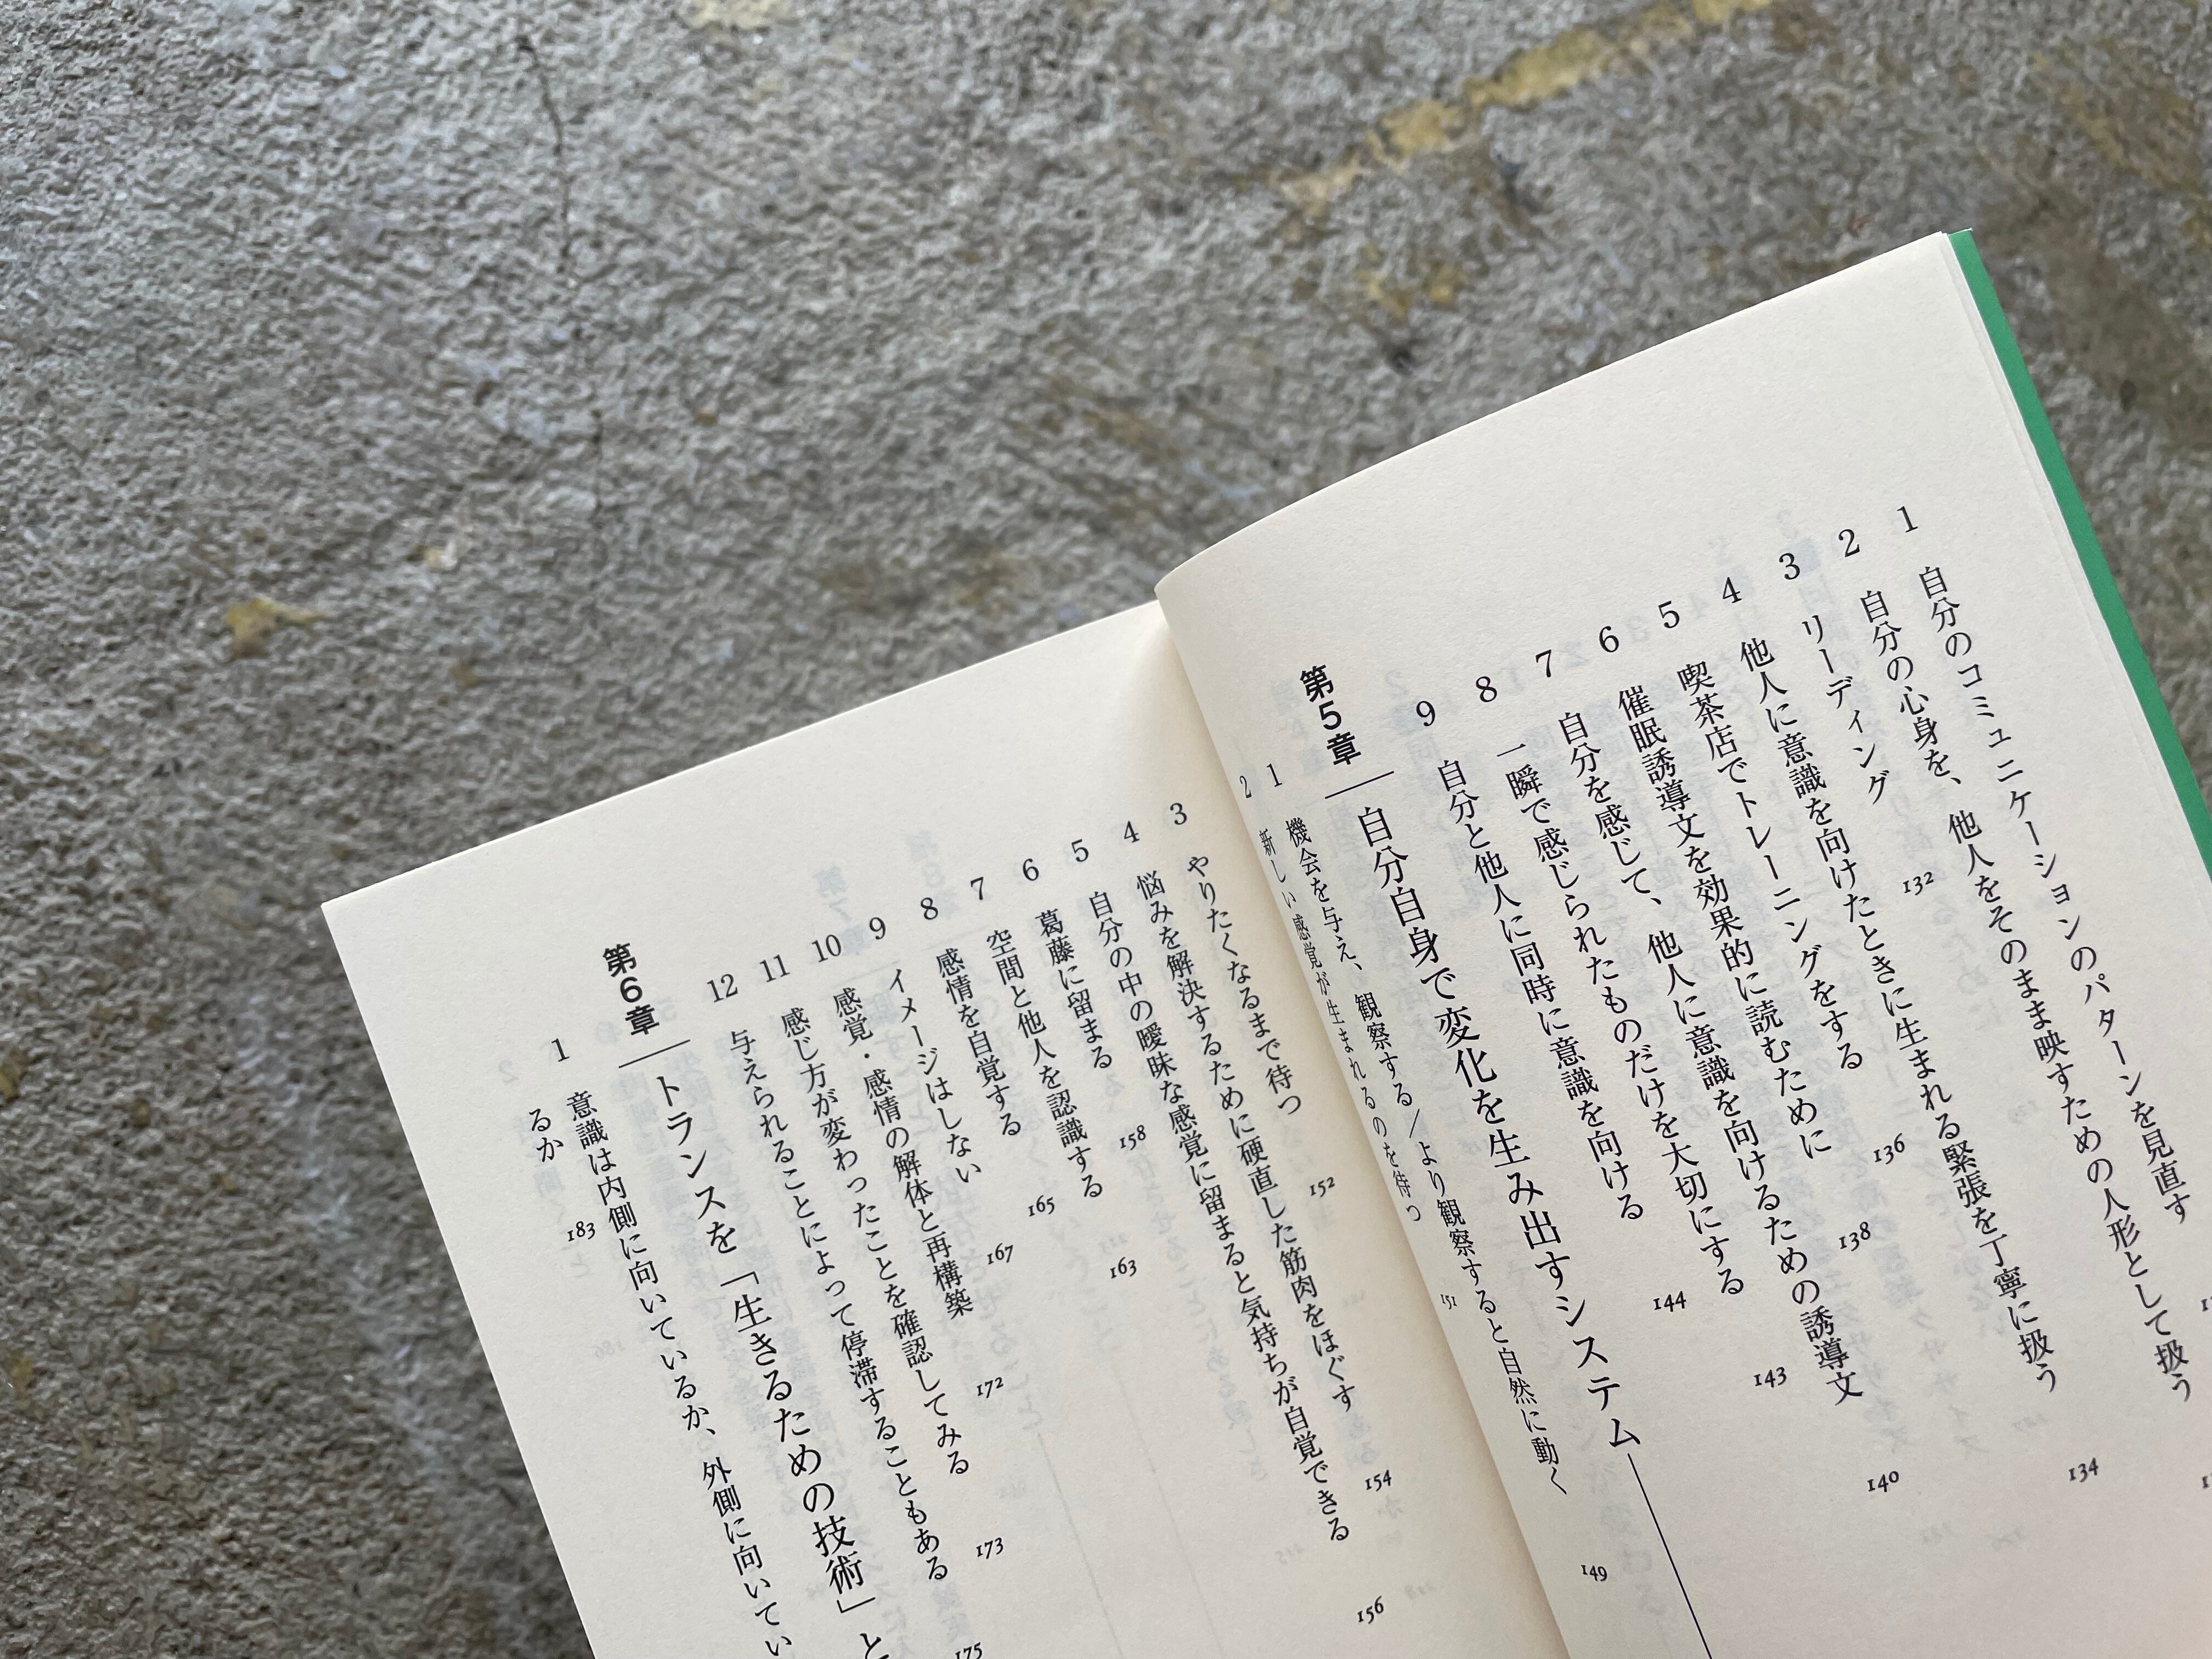 1 自分のコミュニケーションのパターンを見直す
2 自分の心身を、他人をそのまま映すための人形として扱う
3 リーディング 132
4 他人に意識を向けたときに生まれる緊張を丁寧に扱う 134
5 喫茶店でトレーニングをする 136
6 催眠誘導文を効果的に読むために 138
7 自分を感じて、他人に意識を向けるための誘導文 140
8 一瞬で感じられたものだけを大切にする 143
9 自分と他人に同時に意識を向ける 144
第5章 自分自身で変化を生み出すシステム
1 機会を与え、観察する/より観察すると自然に動く 149
2 新しい感覚が生まれるのを待つ 151
3 やりたくなるまで待つ 152
4 悩みを解決するために硬直した筋肉をほぐす 154
5 自分の中の曖昧な感覚に留まると気持ちが自覚できる 156
6 葛藤に留まる 158
7 空間と他人を認識する 163
8 感情を自覚する 165
9 イメージはしない 167
10 感覚・感情の解体と再構築 172
11 感じ方が変わったことを確認してみる 173
12 与えられることによって停滞することもある 175
第6章 トランスを「生きるための技術」と
1 意識は内側に向いているか、外側に向いてい
るか 183